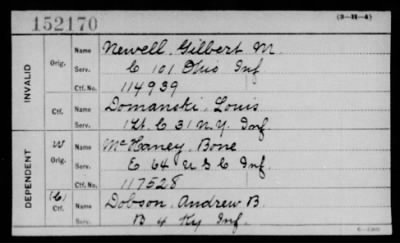 152170
(3-H-4)
INVALID
Orig.
Name Newell, Gilbert M.
Serv. C 101 Ohio Inf
Ctf. No. 114939
Ctf.
Name Domanski, Louis
Serv. 1 Lt. C 31 N.Y. Inf.
DEPENDENT
W
Orig.
Name McHaney, Bone
Serv. E 64 U S C Inf.
Ctf. No. 117528
(C)
Ctf.
Name Dobson, Andrew B.
Serv. B 4 Ky Inf.